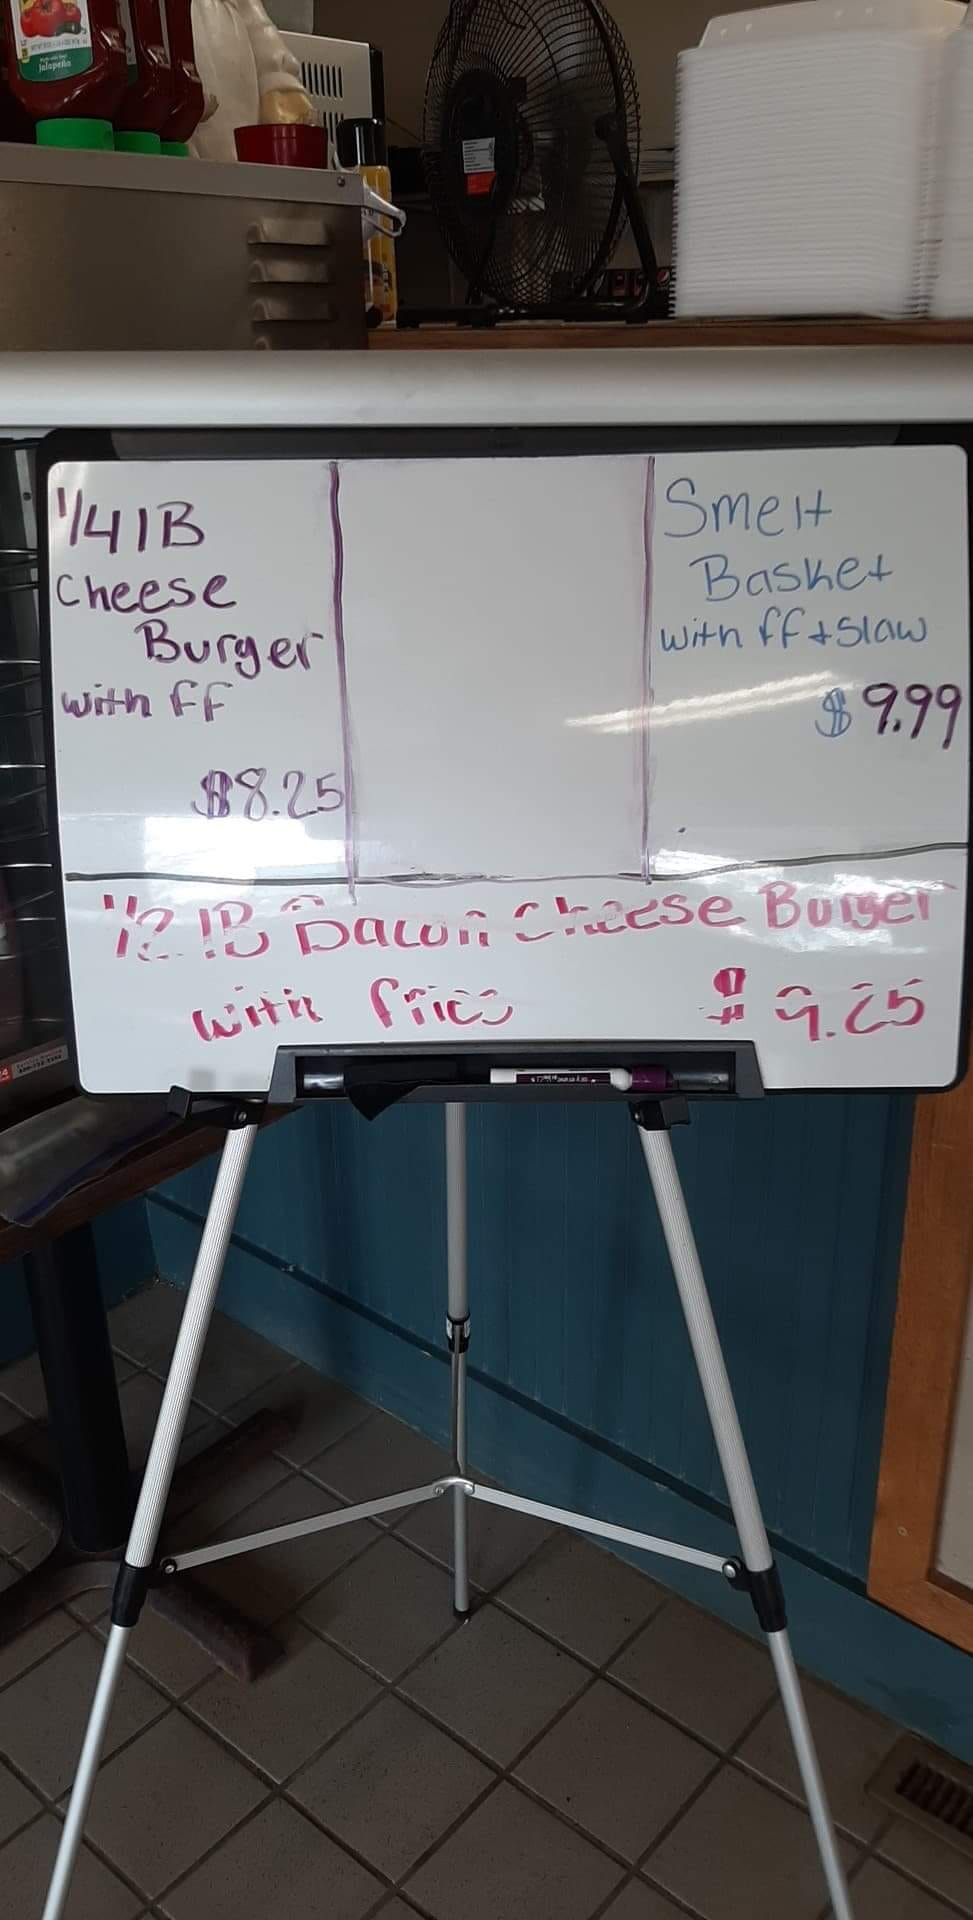 Jalapeño
1/4 lB
Cheese
Burger
with ff
$8.25
Smelt
Basket
with ff + Slaw
$9.99
1/2 lB Bacon Cheese Burger
with fries $9.25